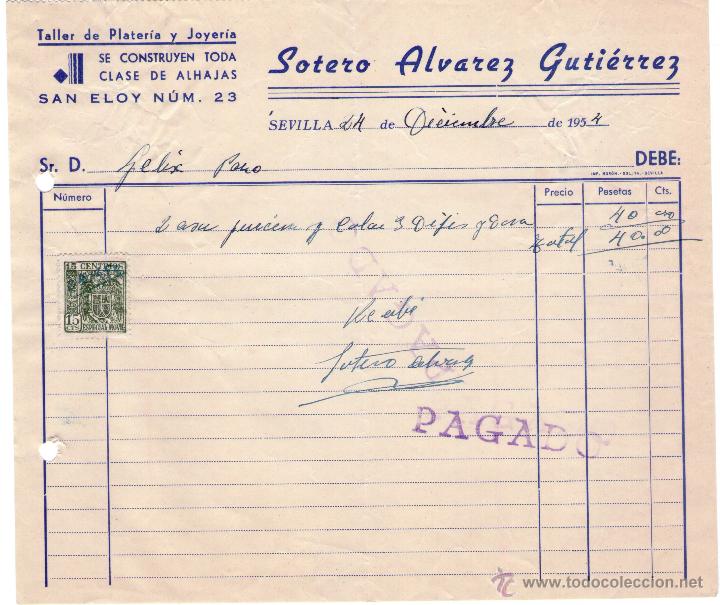 Taller de Platería y Joyería
SE CONSTRUYEN TODA
CLASE DE ALHAJAS
SAN ELOY NÚM. 23
Sotero Alvarez Gutiérrez
SEVILLA 24 de Diciembre de 1954
Sr. D. Felix
DEBE:
IMP. -SEVILLA
Número Precio Pesetas Cts.
y 3 y 40
total 40.00
15 CENTIMOS
15 CTS
ESPECIAL MOVIL
Recibí
Sotero Alvarez
PAGADO
PAGADO
© www.todocoleccion.net